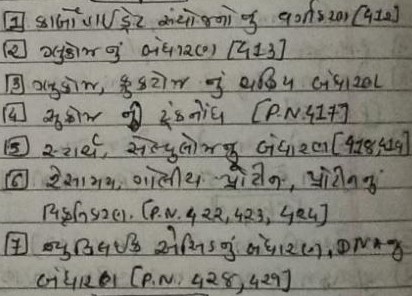 1 કાર્બોહાઈડ્રેટ સંયોજનો નું વર્ગીકરણ [412]
2 ગ્લુકોઝ નું બંધારણ [413]
3 ગ્લુકોઝ, ફ્રુક્ટોઝ નું ચક્રિય બંધારણ
4 સુક્રોઝ ની ટૂંકનોંધ [P.N.417]
5 સ્ટાર્ચ, સેલ્યુલોઝનું બંધારણ [418,419]
6 રેસામય, ગોલીય પ્રોટીન, પ્રોટીનનું
વિકૃતિકરણ. [P.N. 422, 423, 424]
7 ન્યુક્લિઈક એસિડનું બંધારણ, DNA નું
બંધારણ [P.N. 428, 429]